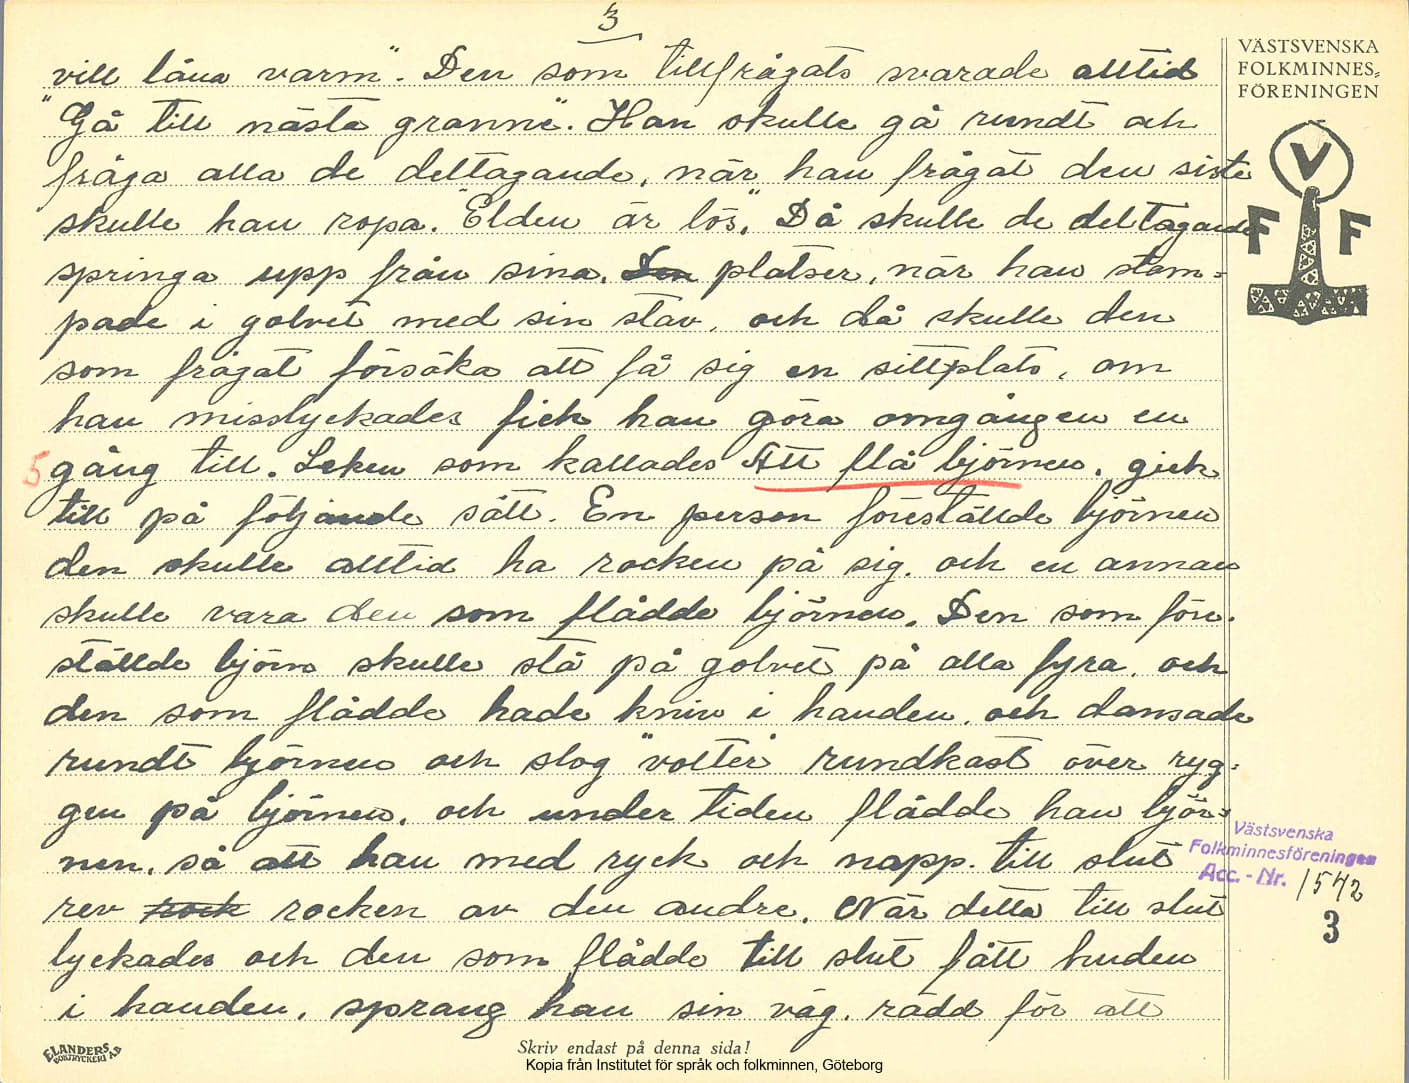 3
vill låna varm". Den som tillfrågats svarade alltid
"Gå till nästa granne". Han skulle gå rundt och
fråga alla de deltagande, när han frågat den siste
skulle han ropa. "Elden är lös". Då skulle de deltagande
springa upp från sina. Den platser, när han stam=
pade i golvet med sin stav, och då skulle den
som frågat försöka att få sig en sittplats, om
han misslyckades fick han göra omgången en
5 gång till. Leken som kallades Att flå björnen, gick
till på följande sätt. En person föreställde björnen
den skulle alltid ha rocken på sig, och en annan
skulle vara den som flådde björnen. Den som före-
ställde björn skulle stå på golvet på alla fyra, och
den som flådde hade kniv i handen, och dansade
rundt björnen och slog "volter" rundkast över ryg=
gen på björnen, och under tiden flådde han björ=
nen, så att han med ryck och napp. till slut
rev rock rocken av den andre. När detta till slut
lyckades och den som flådde till slut fått huden
i handen, sprang han sin väg, rädd för att
VÄSTSVENSKA
FOLKMINNES=
FÖRENINGEN
V
F F
Västsvenska
Folkminnesföreningen
Acc. - Nr. 1542
3
ELANDERS
BOKTRYCKERI AB
Skriv endast på denna sida!
Kopia från Institutet för språk och folkminnen, Göteborg